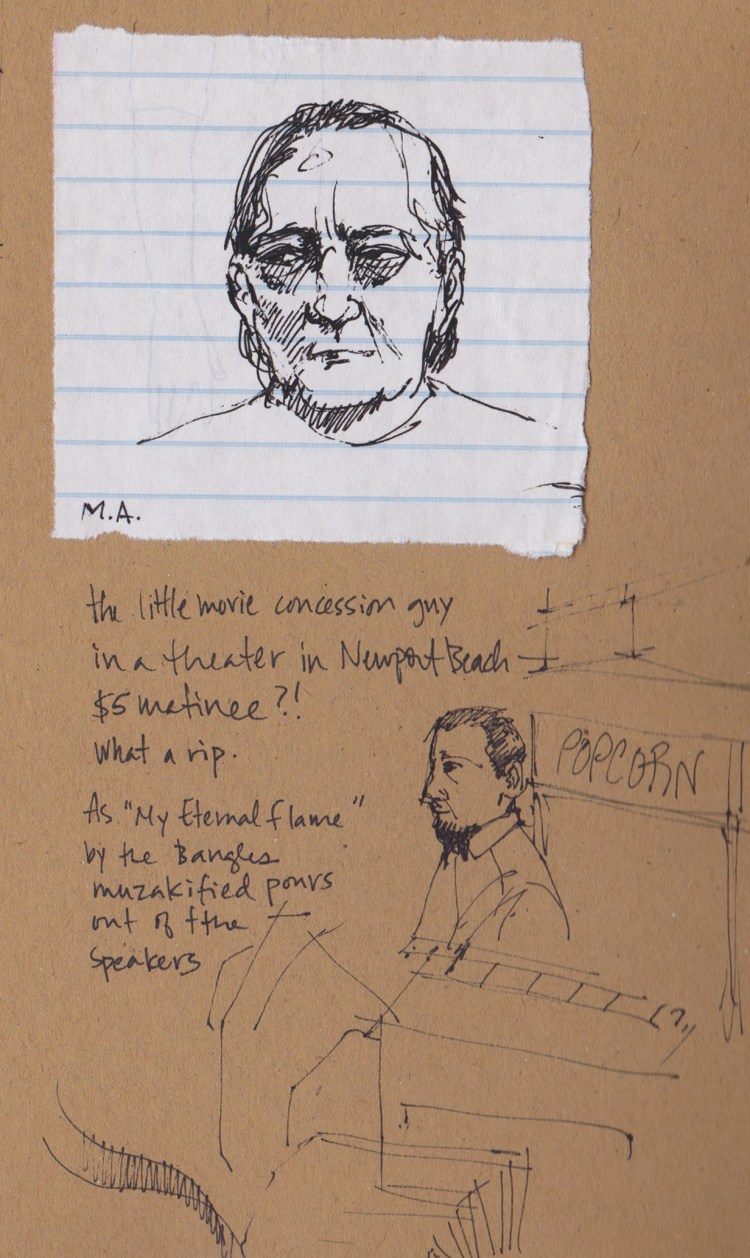 M.A.
the little movie concession guy
in a theater in Newport Beach
$5 matinee?!
what a rip.
POPCORN
As "My Eternal flame"
by the Bangles
muzakified pours
out of tthe
speakers